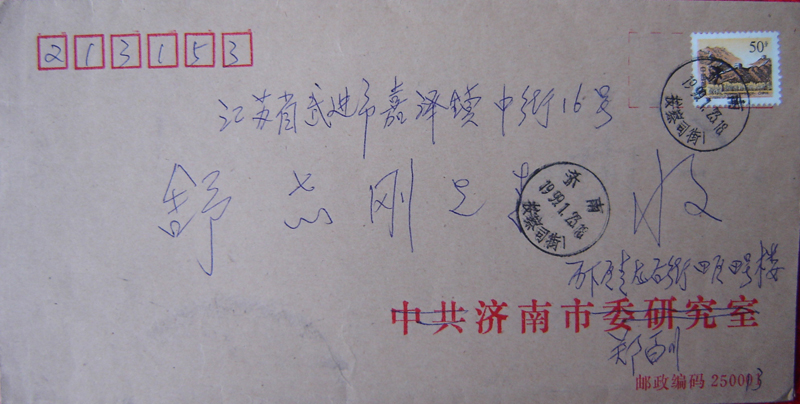 213153
50分
江苏省武进市嘉泽镇中街16号
舒志刚 收
济南
1999.1.23.18
按察司街
济南
1999.1.23.18
按察司街
街四号楼
中共济南市委研究室
郑百川
邮政编码 250013